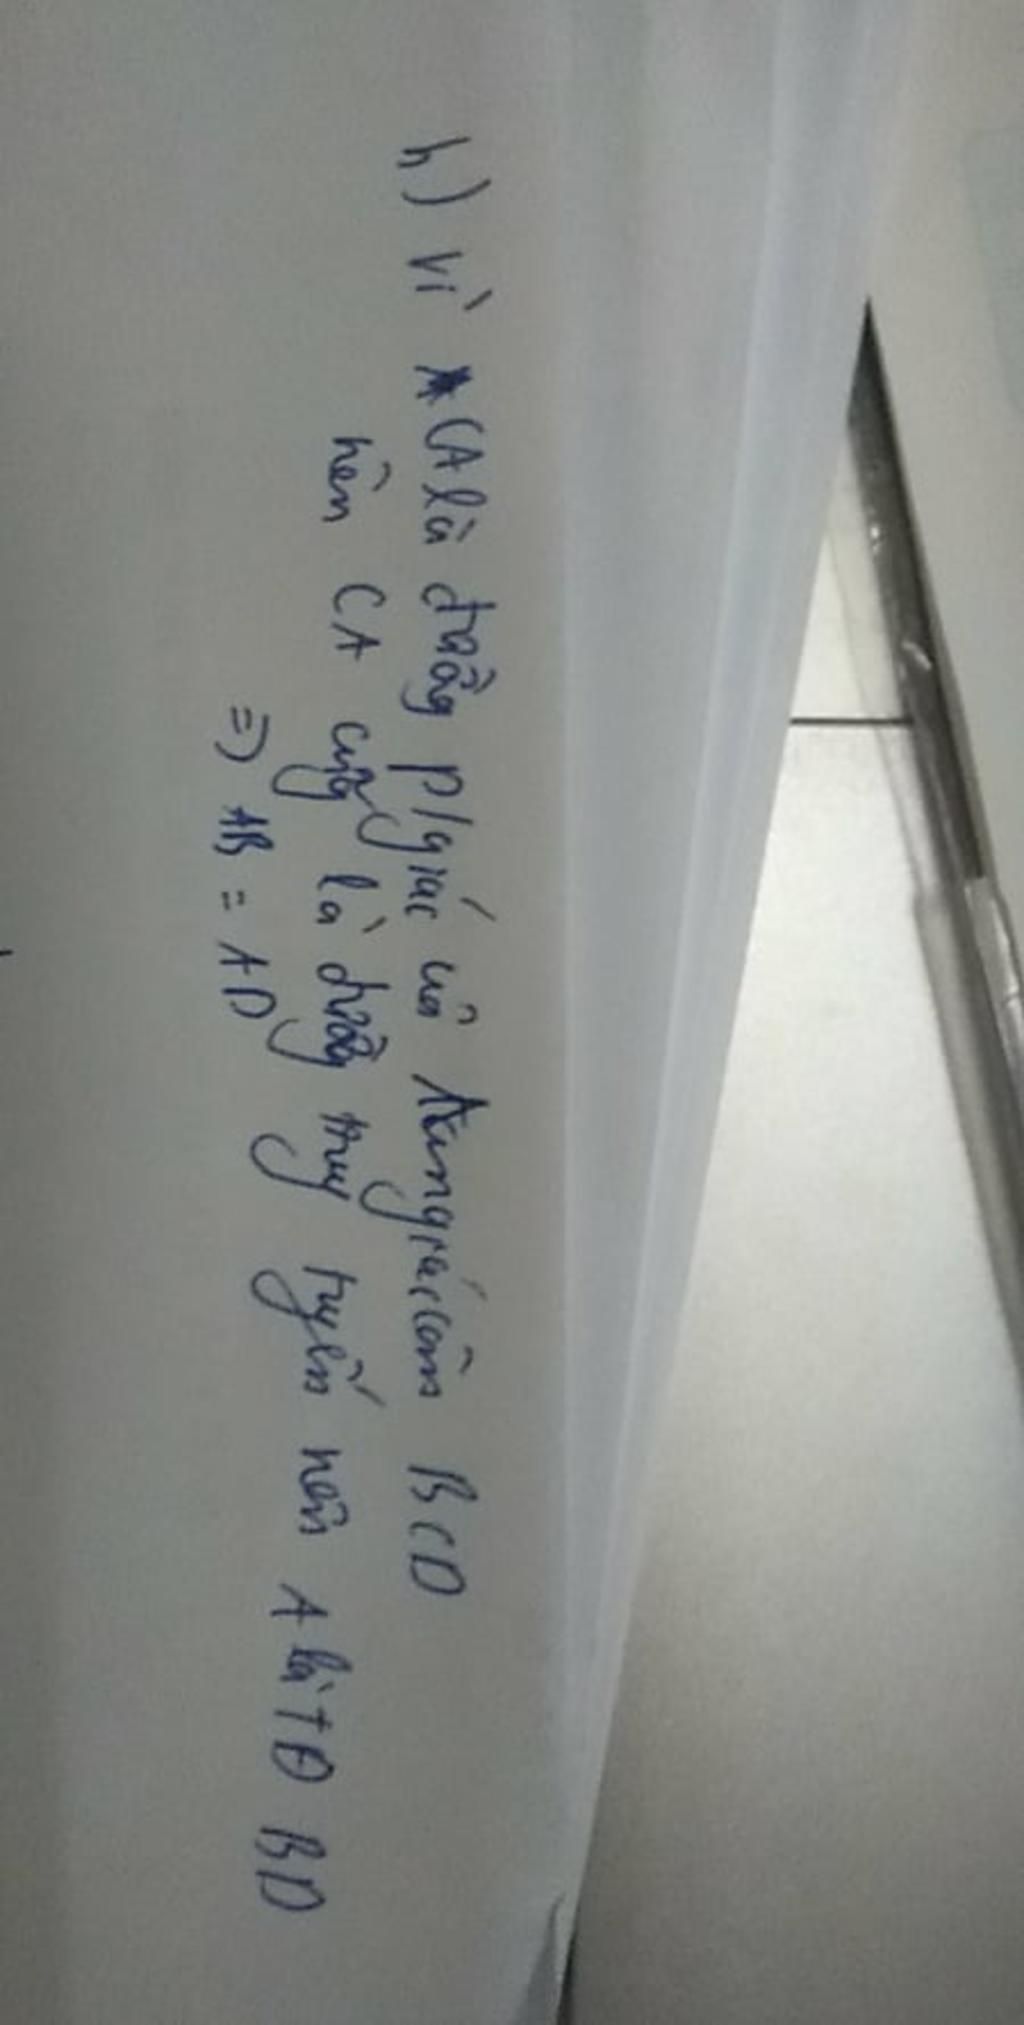 h) Vì CA là đường p/giác của tam giác cân BCD
nên CA cũng là đường trung tuyến nên A là TĐ BD
=> AB = AD